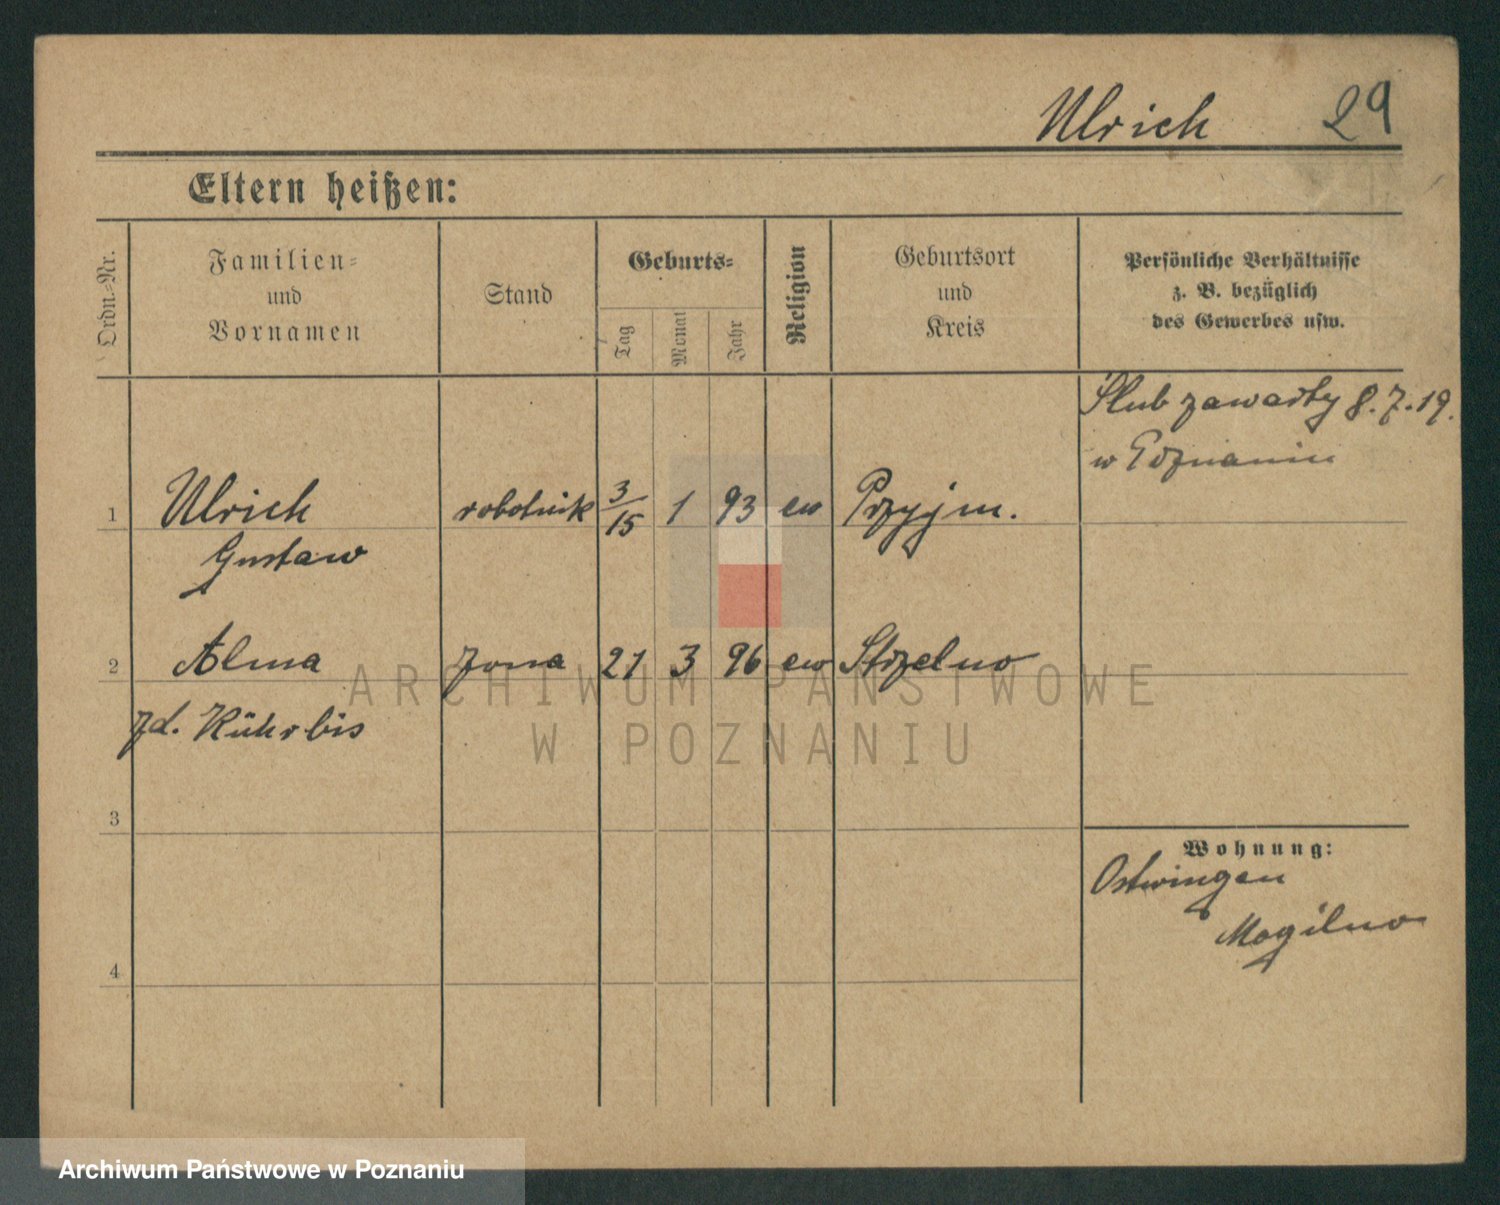 Ulrich 29
Eltern heißen:
Ordn.-Nr.
Familien-
und
Vornamen
Stand
Geburts-
Tag
Monat
Jahr
Religion
Geburtsort
und
Kreis
Persönliche Verhältnisse
z. B. bezüglich
des Gewerbes usw.
Ślub zawarty 8.7.19.
w Poznaniu
1 Ulrich robotnik 3/15 1 93 ew Przyjm.
Gustaw
2 Alma żona 21 3 96 ew Strzelno
zd. Kührbis
3
Wohnung:
Ostwingen
Mogilno
4
ARCHIWUM PAŃSTWOWE
W POZNANIU
Archiwum Państwowe w Poznaniu